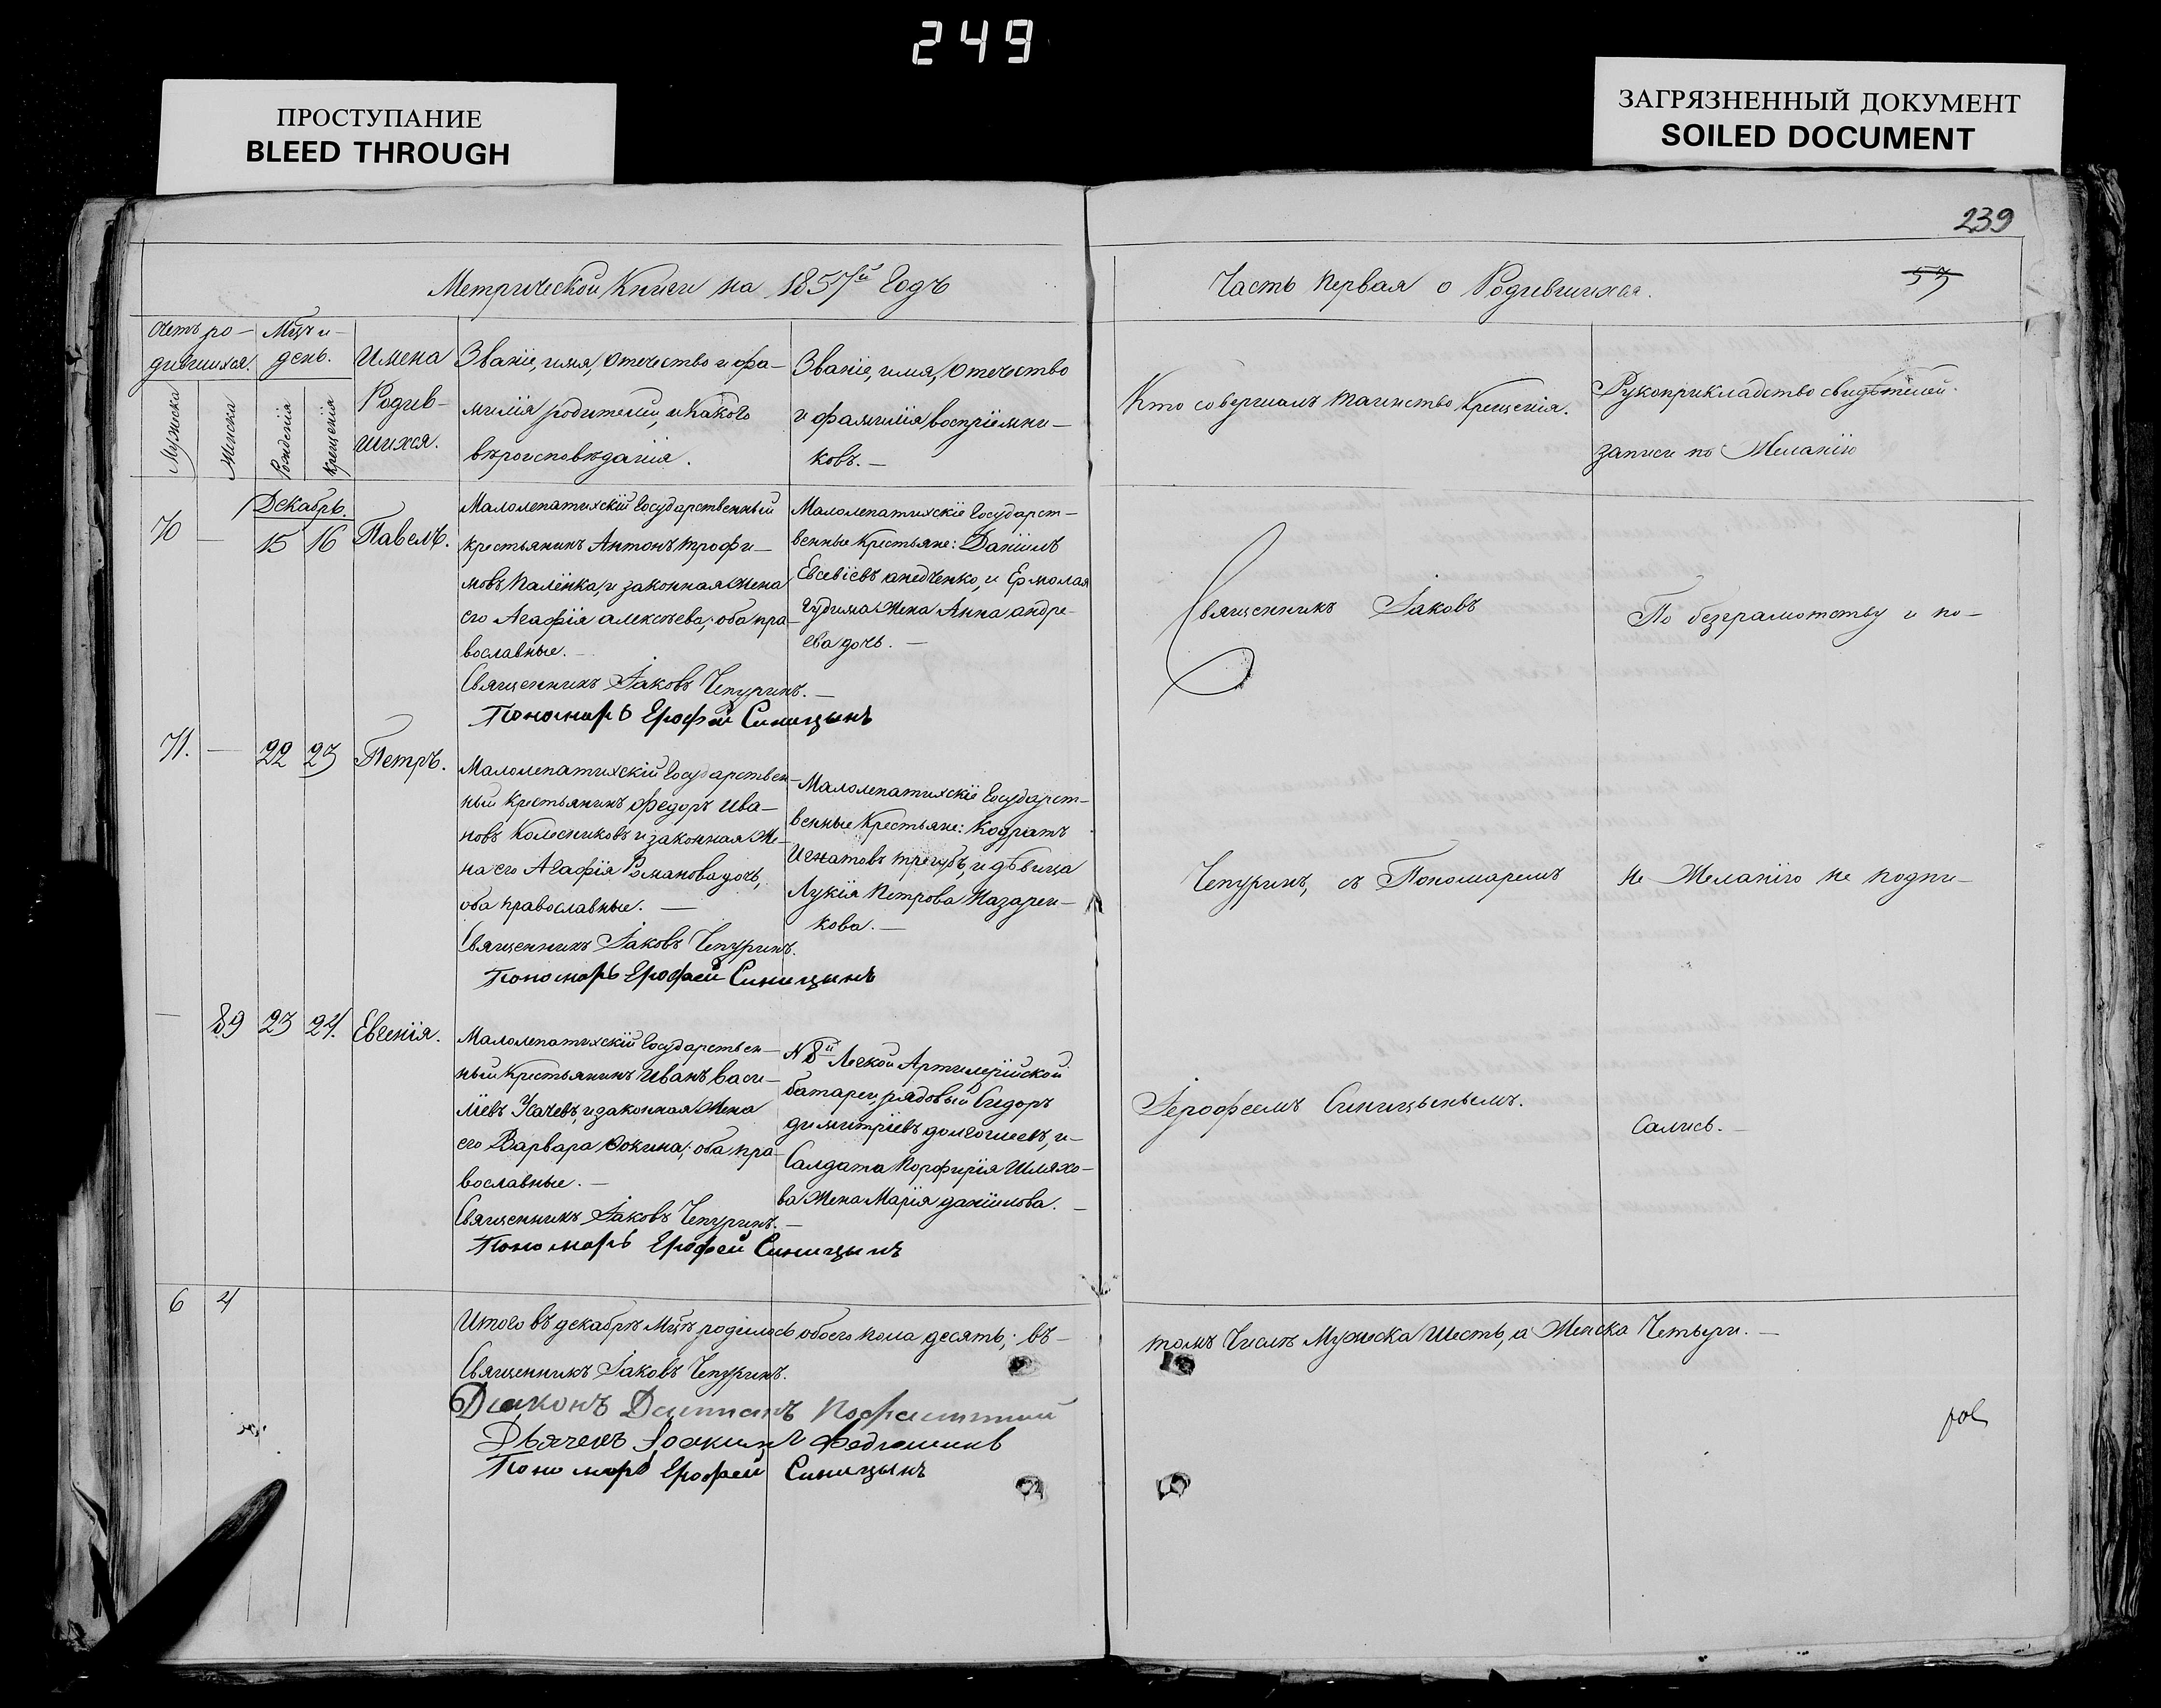 249
ПРОСТУПАНИЕ
BLEED THROUGH
ЗАГРЯЗНЕННЫЙ ДОКУМЕНТ
SOILED DOCUMENT
239
Метрической Книги на 1857й Годъ
Часть Первая о Родившихся.
53
Счетъ ро-
дившихся.
Мужеска
Женска
Мцъ и
день.
Рожденія
Крещенія
Имена
Родив-
шихся.
Званіе, имя, Отечество и фа-
милія родителей, и какого
вѣроисповѣданія.
Званіе, имя, Отечество
и фамилія воспріемни-
ковъ.-
Кто совершалъ таинство Крещенія.
Рукоприкладство свидѣтелей
записи по Желанію
Декабрь.
70 - 15 16 Павелъ.
Малолепатихскій Государственный
крестьянинъ Антонъ Трофи-
мовъ Палёнка, и законная Жена
его Агафія алексѣева; оба пра-
вославные.-
Священникъ Іаковъ Чепуринъ.-
Пономарь Ерофей Синицынъ
Малолепатихскіе Государст-
венные Крестьяне: Даніилъ
Евсевіевъ , и Ермолая
Гудима Жена Анна андре-
ева дочь.-
71. - 22 23 Петръ.
Малолепатихскій Государствен-
ный Крестьянинъ Федоръ Ива-
новъ Колесниковъ и законная Же-
на его Агафія Романова дочь,
оба православные.-
Священникъ Іаковъ Чепуринъ.
Пономарь Ерофей Синицынъ
Малолепатихскіе Государст-
венные Крестьяне: Кодратъ
Игнатовъ Трегубъ, и дѣвица
Лукія Петрова Назарен-
кова.-
- 89 23 24. Евгенія.
Малолепатихскій Государствен-
ный Крестьянинъ Иванъ Васи-
ліевъ Усачевъ, и законная Жена
его Варвара Фокина; оба пра-
вославные.-
Священникъ Іаковъ Чепуринъ.-
Пономарь Ерофей Синицынъ
N 8й Легкой Артилерійской
батареи, рядовый Сидоръ
димитріевъ , и-
Салдата Порфирія Шляхо-
ва Жена Марія даніилова.-
Священникъ Іаковъ
Чепуринъ, съ Пономаремъ
Іерофеемъ Синицынымъ.
По безграмотству и по-
не Желанію не подпи-
сались.-
6 4
Итого въ декабрѣ Мцѣ родилось обоего пола десять; въ-
томъ Числѣ Мужеска Шесть, а Женска Четыри.-
Священникъ Іаковъ Чепуринъ.
Діаконъ
Дьячекъ Іоакимъ
Пономарь Ерофей Синицынъ